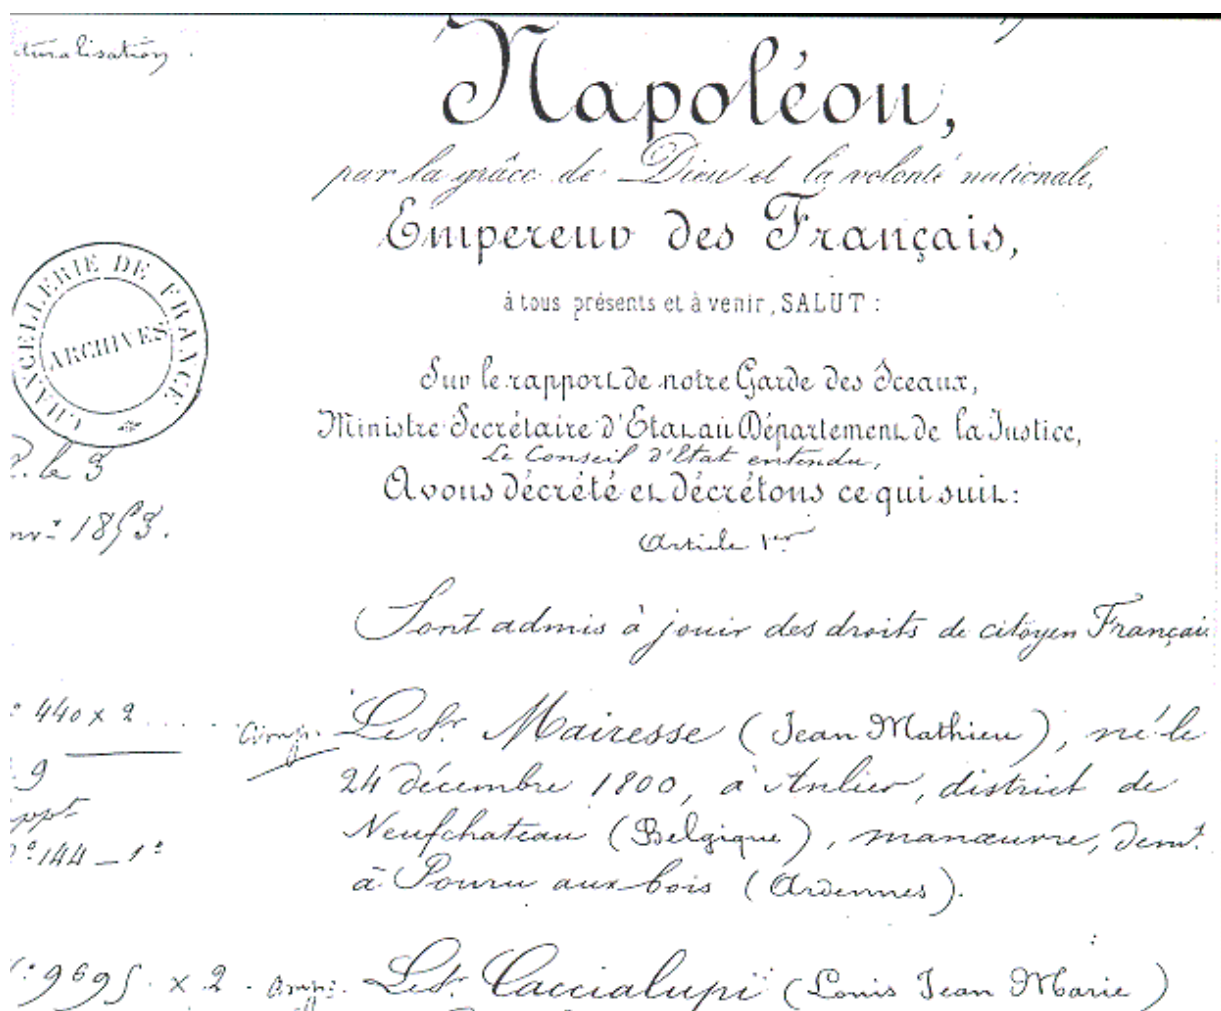 cturalisation.
Napoléon,
par la grâce de Dieu et la volonté nationale,
Empereur des Français,
à tous présents et à venir, SALUT :
CHANCELLERIE DE FRANCE
ARCHIVES
Sur le rapport de notre Garde des Sceaux,
Ministre Secrétaire d'Etat au Département de la Justice,
Le Conseil d'Etat entendu,
Avons décrété et décrétons ce qui suit :
le 3
1853.
Article 1er
Sont admis à jouir des droits de citoyen Français
440 x 2 ...... Le Sr Mairesse (Jean Mathieu), né le
24 décembre 1800, à Anlier, district de
9
Neufchateau (Belgique), manœuvre, demt.
ppt
144 _ 1º
à Pouru aux bois (Ardennes).
9695. x 2. Le Sr. Caccialupi (Louis Jean Marie)